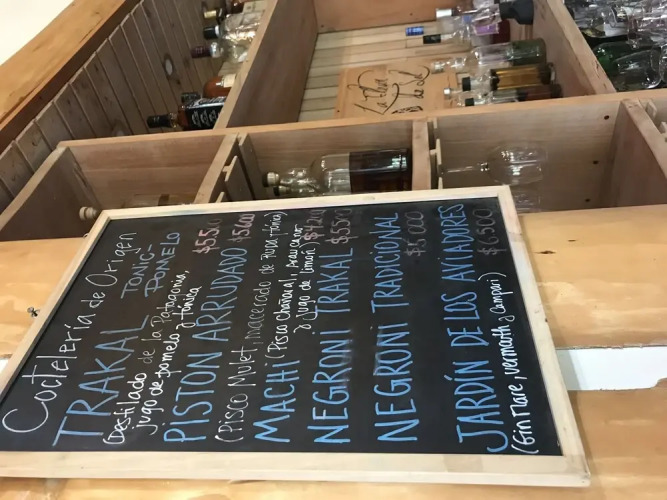 Coctelería de Origen
TRAKAL TONIC-
POMELO
(Destilado de la Patagonia, $5.500
jugo de pomelo y tónica
PISTON ARRUDADO $5.000
(Pisco Mulet, macerado de Ruda, tónica)
MACHI (Pisco Chañaral, Araucano $4.200
y jugo de limón)
NEGRONI TRAKAL $5.500
NEGRONI TRADICIONAL
$5.000
JARDÍN DE LOS AVIADORES
(Gin Mare, vermouth y Campari) $6.500
La Flor
de Sal